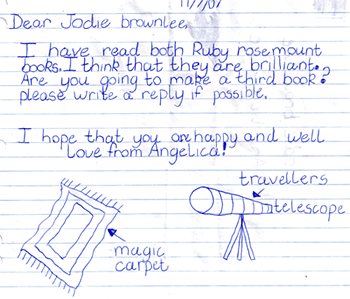 11/7/07
Dear Jodie brownlee,
I have read both Ruby rosemount
books. I think that they are brilliant.
Are you going to make a third book?
please write a reply if possible.
I hope that you are happy and well
Love from Angelica!
travellers
telescope
magic
carpet